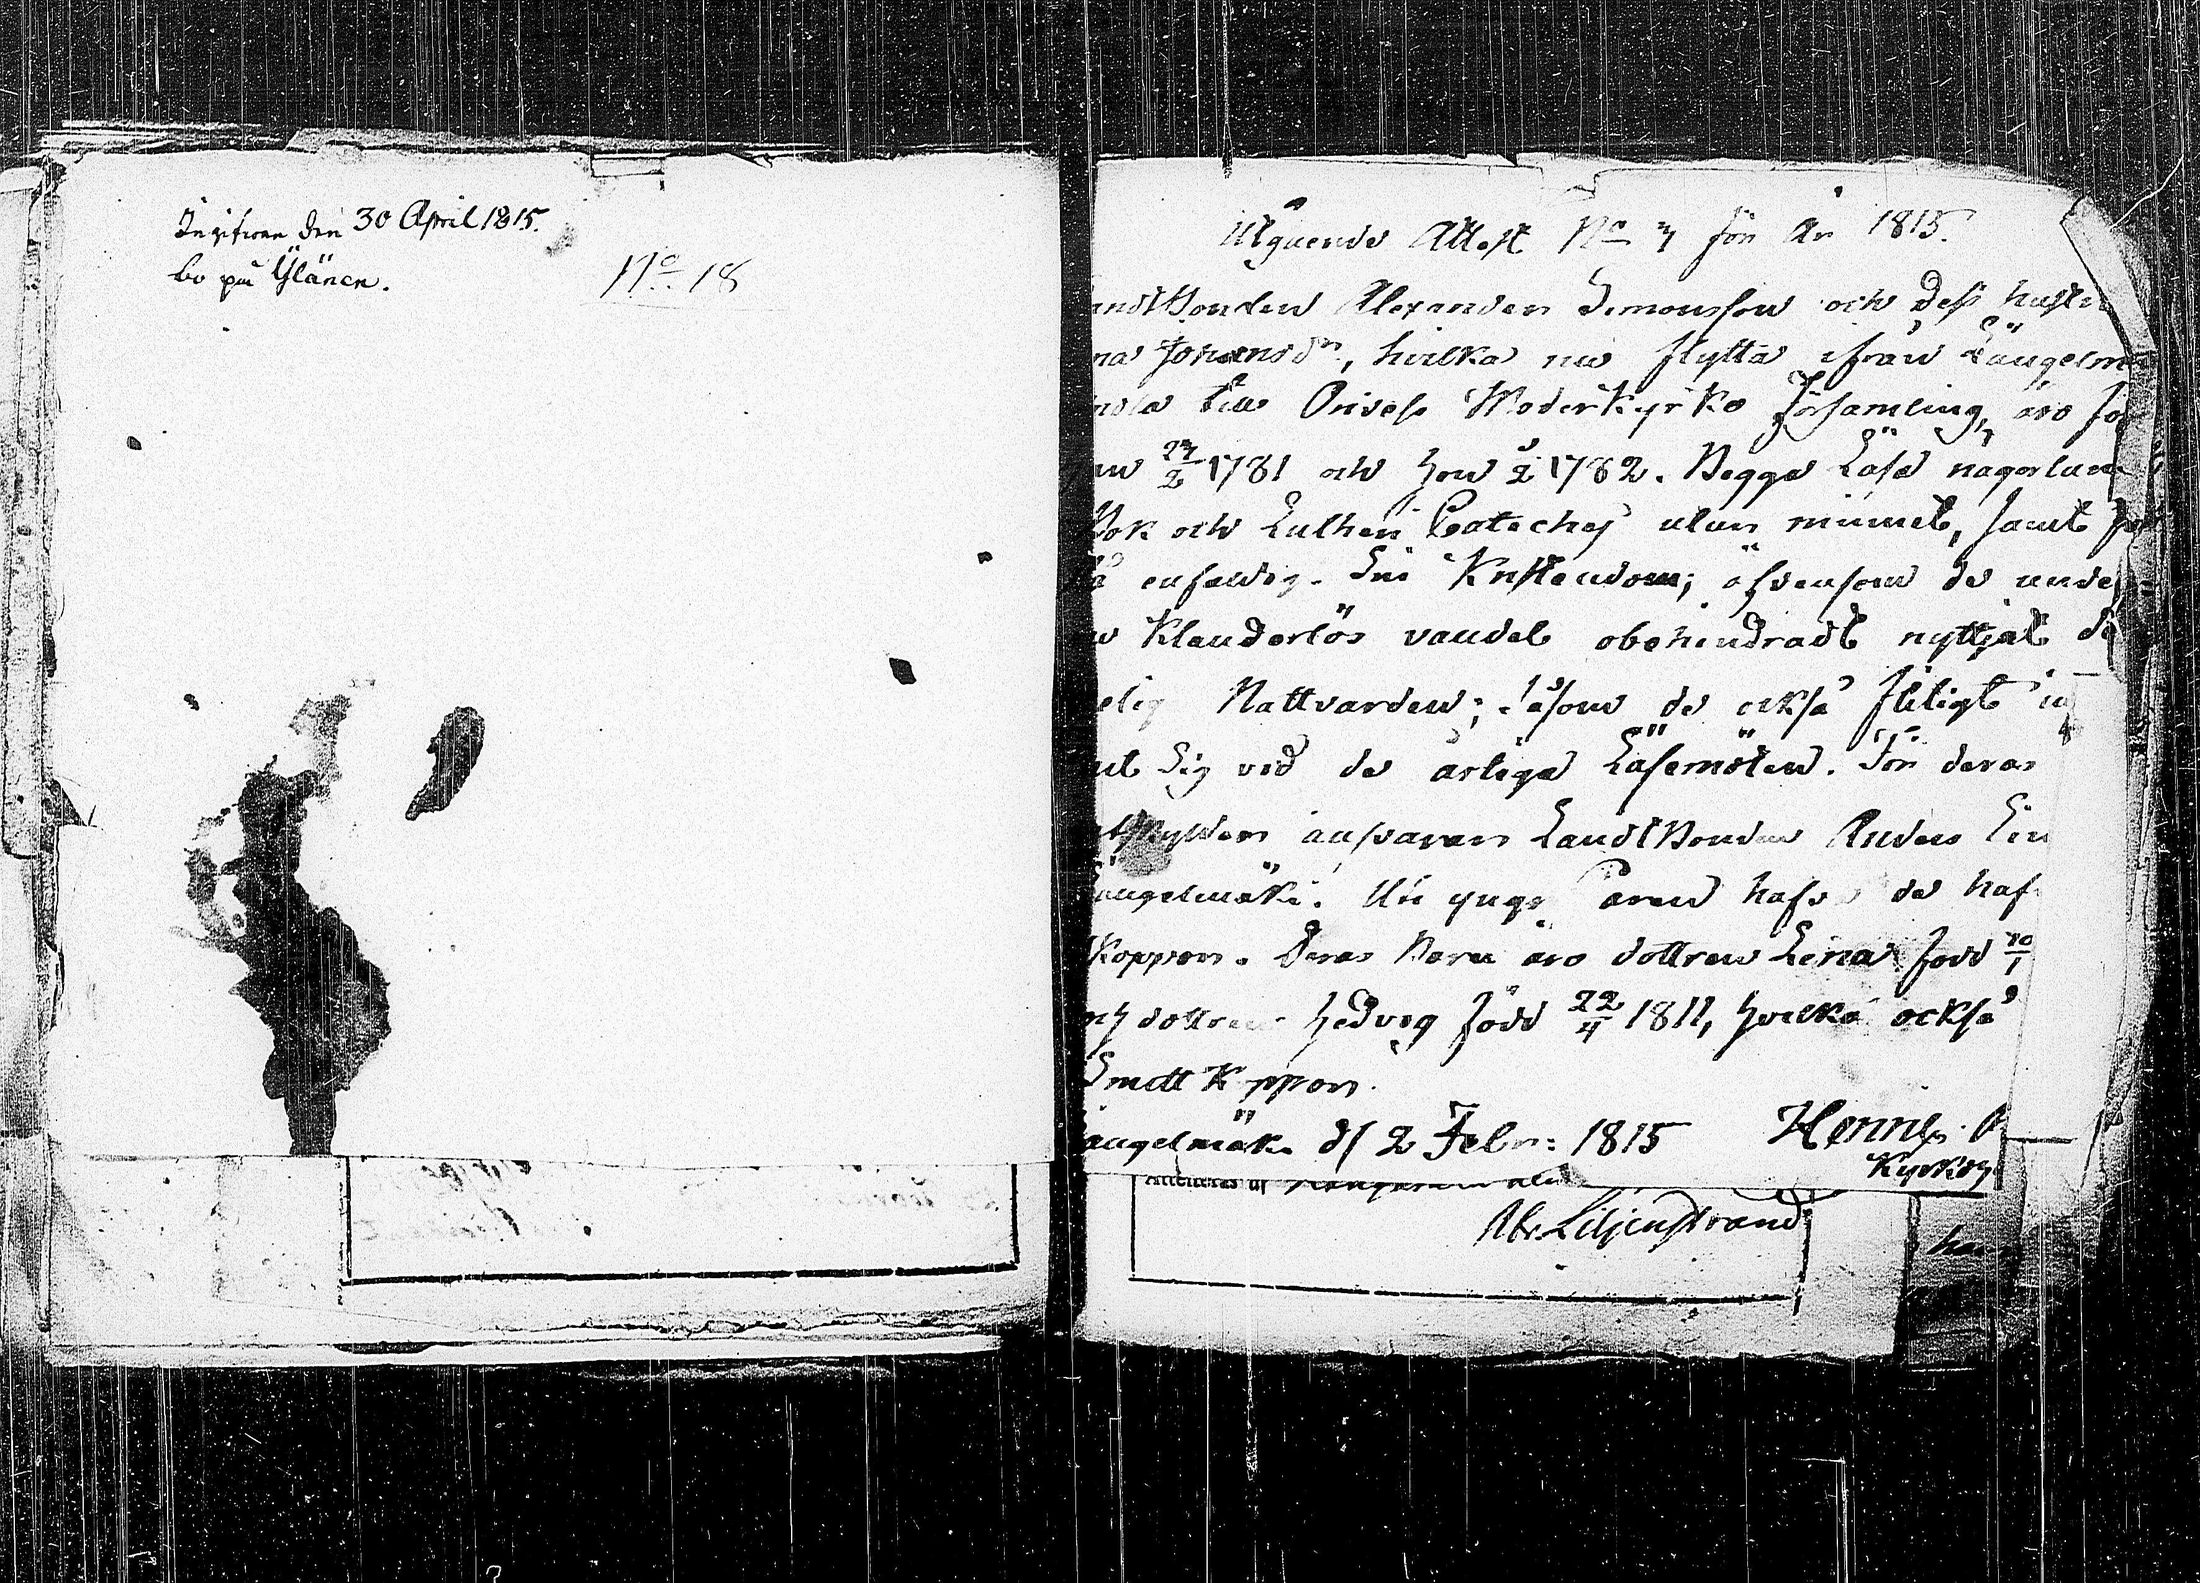 den 30 April 1815.
bo på Ylänen.
No 18
Utgående Attest No 7 för År 1815.
andtbonden Alexander Simonsson och Dess hustr
na Johansdr, hvilka nu flytta ifrån Längelmä
till Orivesi Moderkyrko Församling, äro fö
an 27/2 1781 och hon 2 1782. Begge Läsa någorlun
Bok och Lutheri Catechej utan minnet, samt
enfaldig. Sin Kristendom; äfvensom de unde
Klanderlös vandel obehindradt nyttjat de
elig Nattvarden; Såsom de också flitigt in
ut Sig vid de årliga Läsemöten. För deras
ansvarar Landtbonden Anders
ängelmäki. Uti yngr åren hafva de haf
Koppor. Deras Barn äro dottren Lena född 10/1
och dottren Hedvig född 22/4 1811, hvilka också
Smitt Koppor.
ängelmäki d 2 Febr: 1815 Henric
Kyrkoh
Abr. Liljenstrand
han